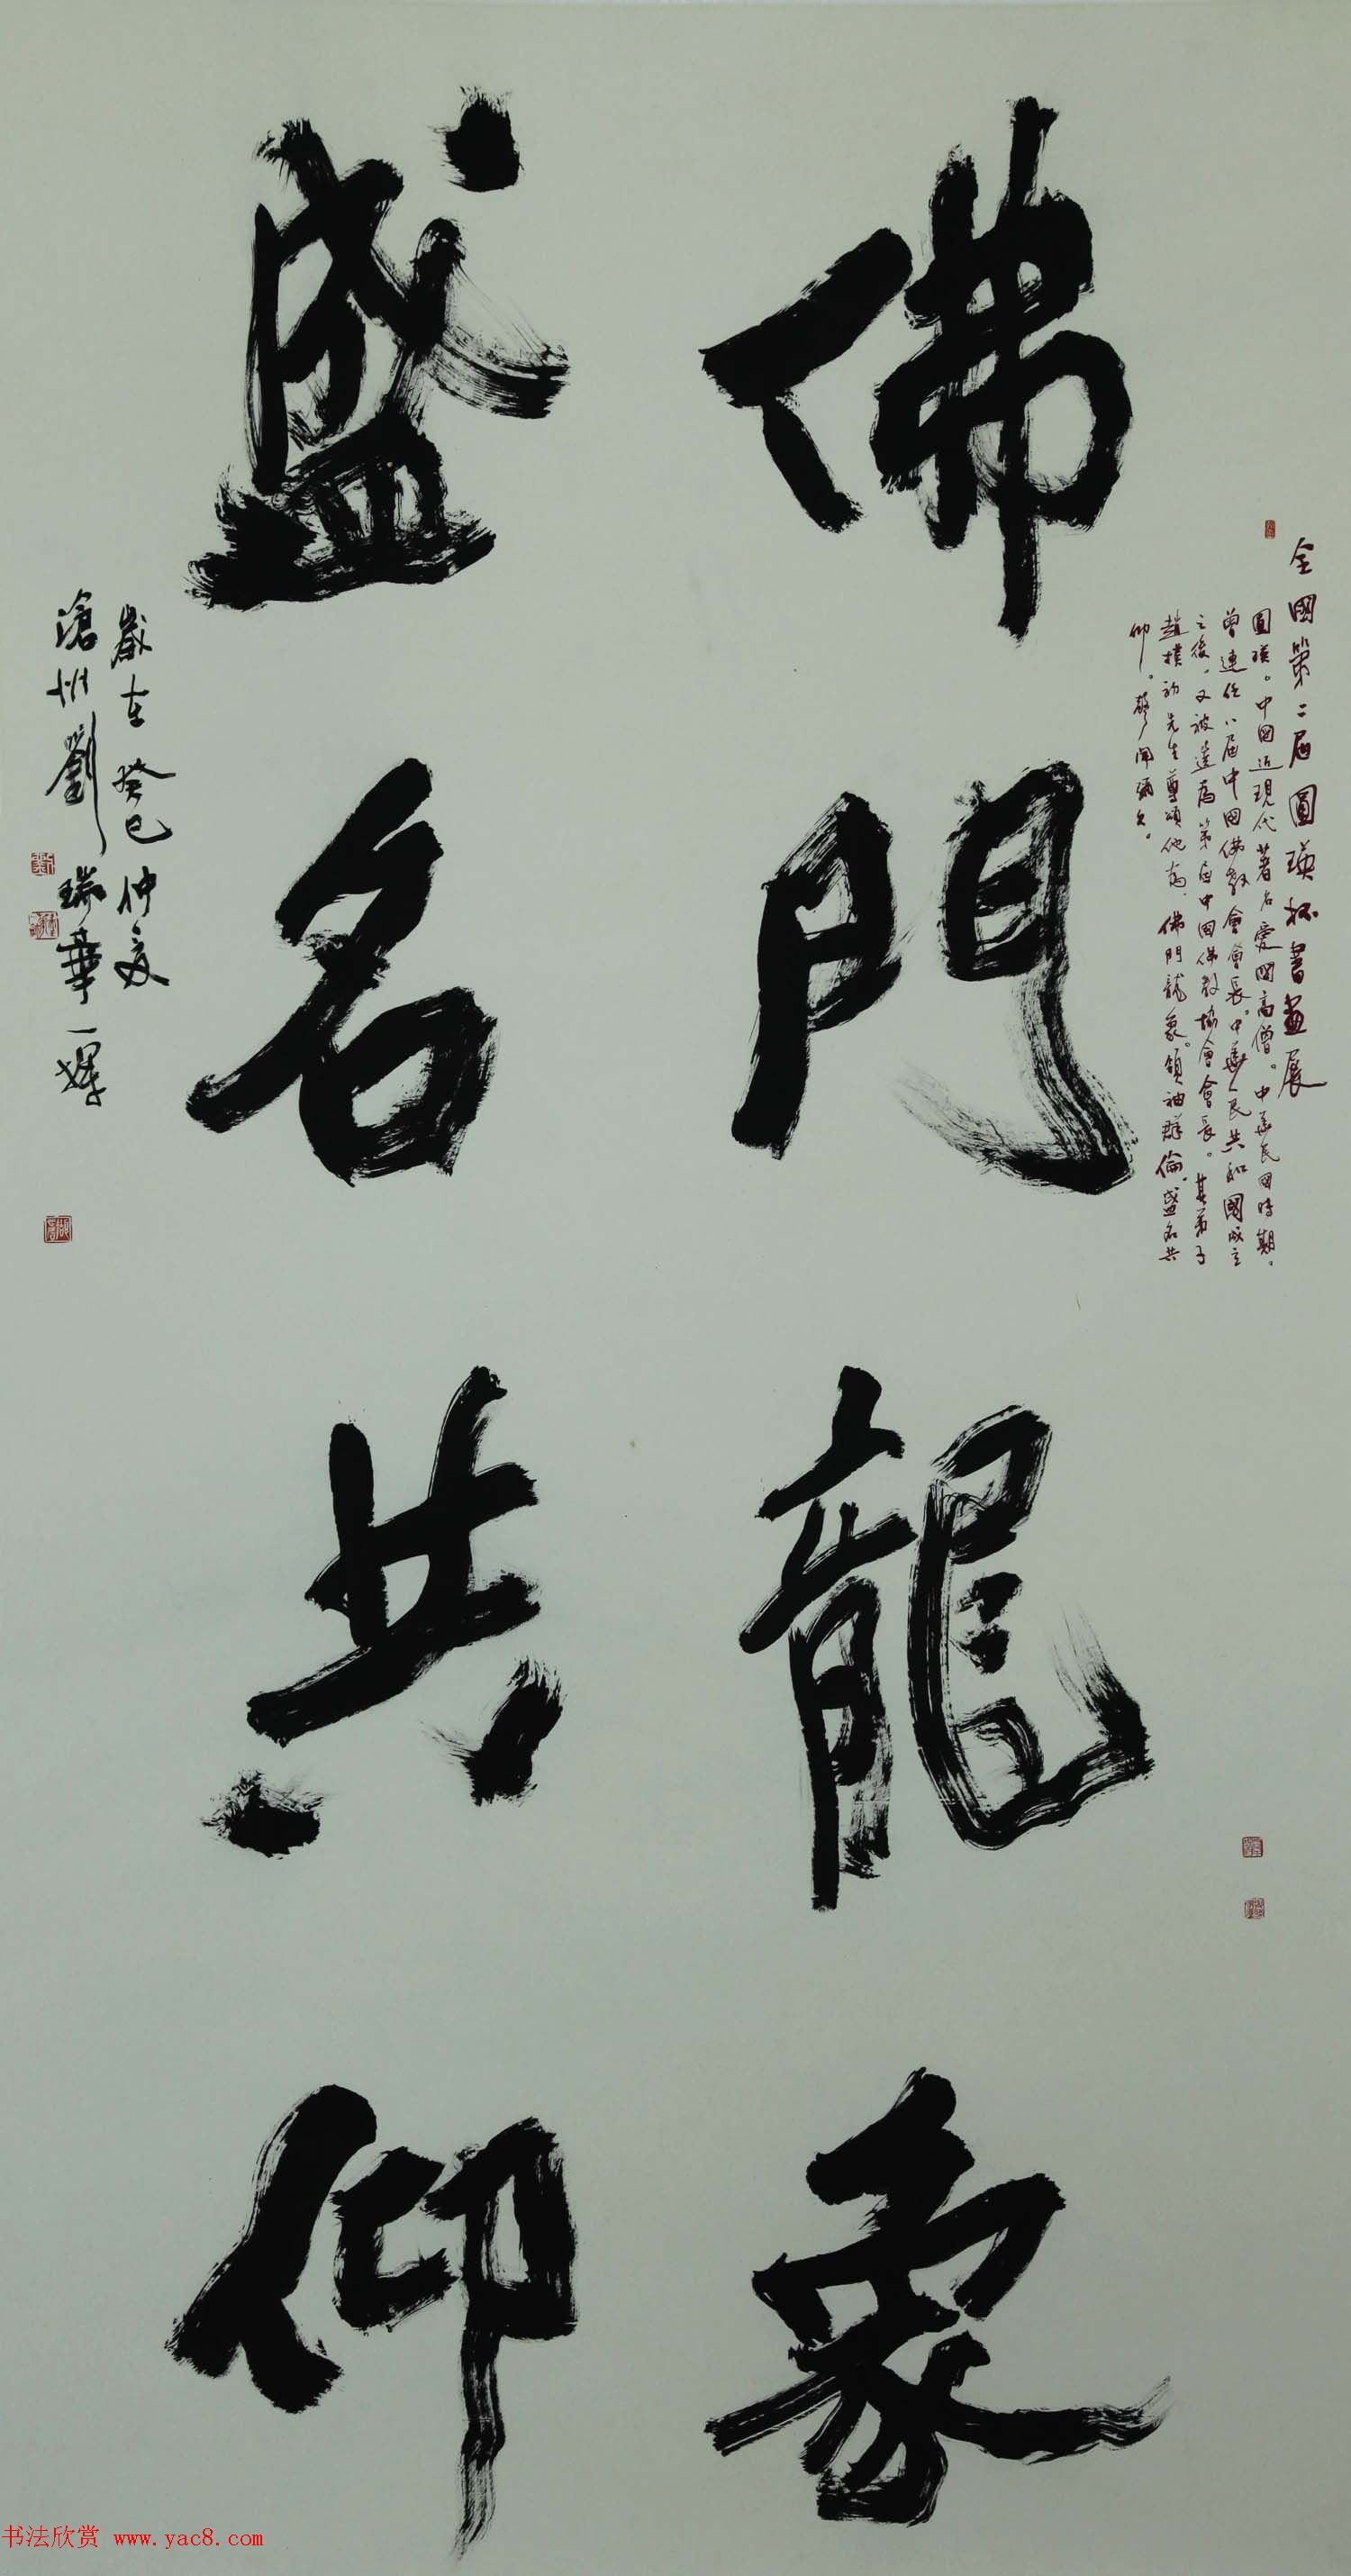 全國第二届圓瑛杯書畫展
圓瑛。中國近現代著名愛國高僧。中華民國時期。
曾連任八届中國佛教會會長。中華人民共和國成立
之後。又被選為第一届中國佛教協會會長。其弟子
趙樸初先生尊頌他為。佛門龍象。領袖群倫。盛名共
仰。馨聞彌久。
佛門龍象
盛名共仰
歲在癸巳仲夏
滄州劉瑞華一揮
书法欣赏 www.yac8.com